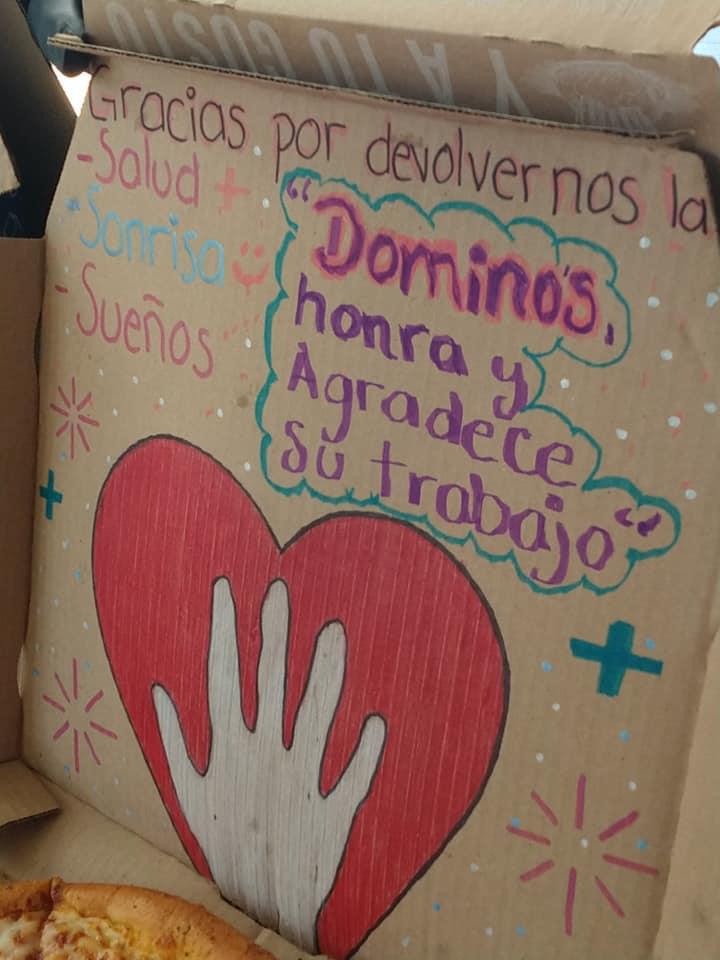 Y A TU GUSTO
Gracias por devolvernos la
-Salud +
-Sonrisa
-Sueños
"Domino's,
honra y
Agradece
su trabajo"